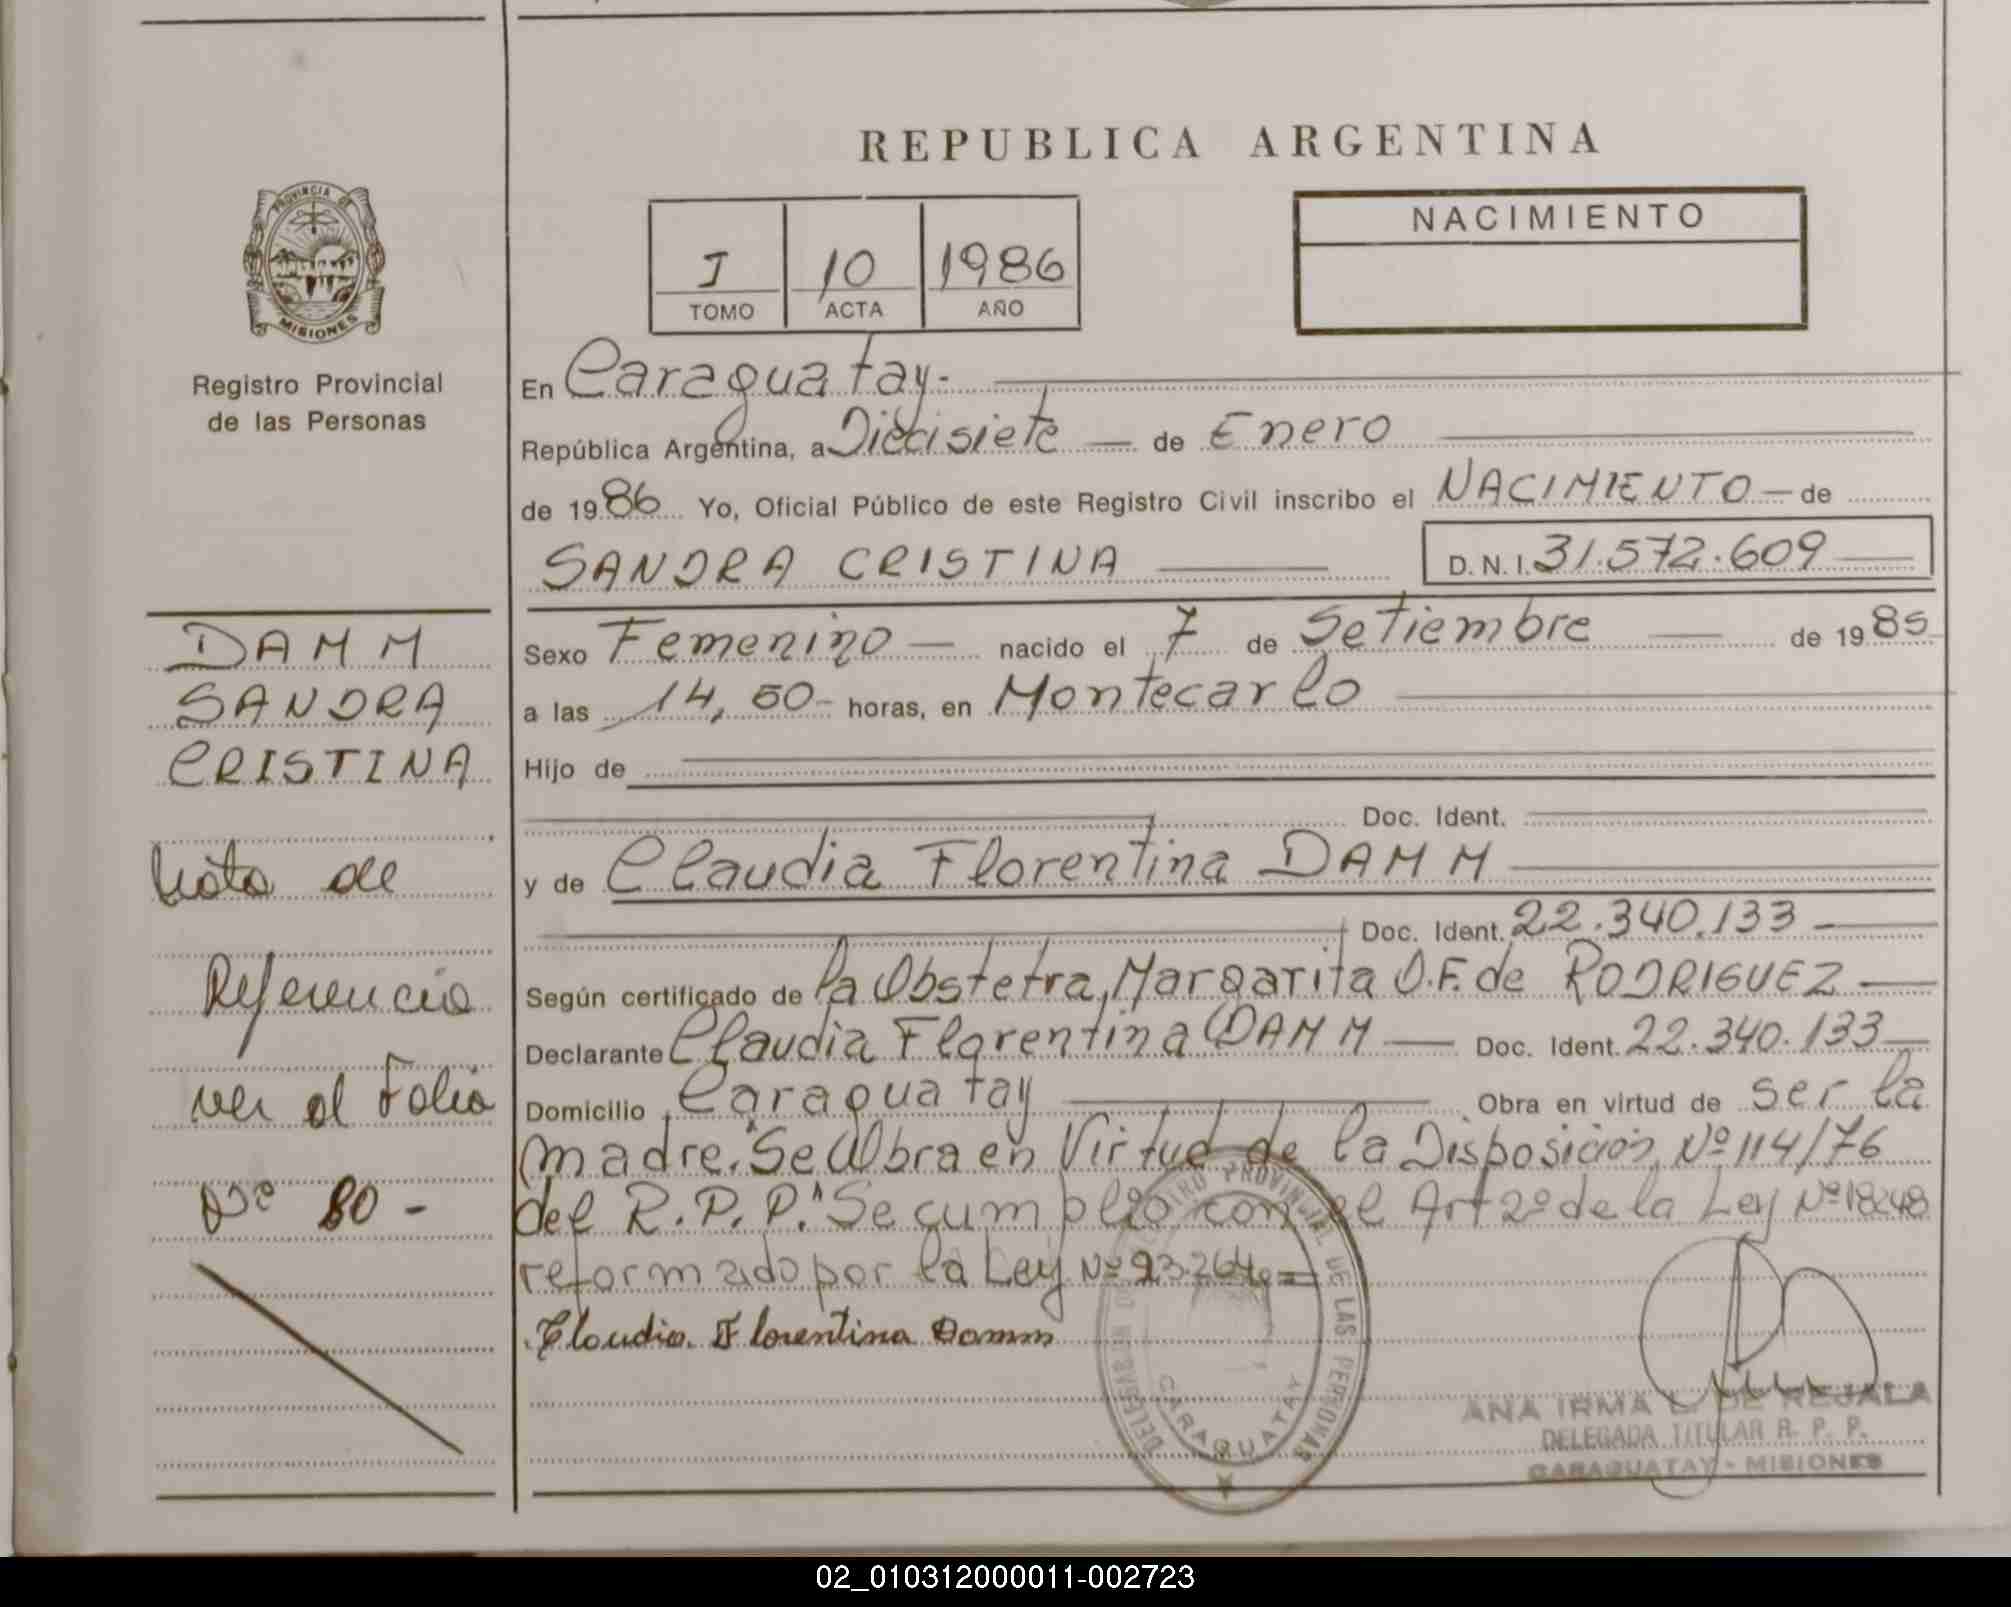 REPUBLICA ARGENTINA
PROVINCIA DE
MISIONES
Registro Provincial
de las Personas
I 10 1986
TOMO ACTA AÑO
NACIMIENTO
En Caraguatay.
República Argentina, a Diecisiete de Enero
de 1986 Yo, Oficial Público de este Registro Civil inscribo el NACIMIENTO de
SANDRA CRISTINA D.N.I. 31.572.609
DAMM
SANDRA
CRISTINA
Nota de
Referencia
ver al Folio
Nº 80 -
Sexo Femenino nacido el 7 de Setiembre de 1985
a las 14, 50 horas, en Montecarlo
Hijo de
Doc. Ident.
y de Claudia Florentina DAMM
Doc. Ident. 22.340.133
Según certificado de la Obstetra, Margarita O.F. de RODRIGUEZ
Declarante Claudia Florentina DAMM Doc. Ident. 22.340.133
Domicilio Caraguatay Obra en virtud de ser la
madre. "Se Obra en Virtud de la Disposición Nº 114/76
del R.P.P." Se cumplió con el Art 2º de la Ley Nº 18248
reformado por la Ley Nº 23.264.=
Claudia Florentina Damm
REGISTRO PROVINCIAL DE LAS PERSONAS
CARAGUATAY
ANA IRMA DE REJALA
DELEGADA TITULAR R. P. P.
CARAGUATAY - MISIONES
02_010312000011-002723